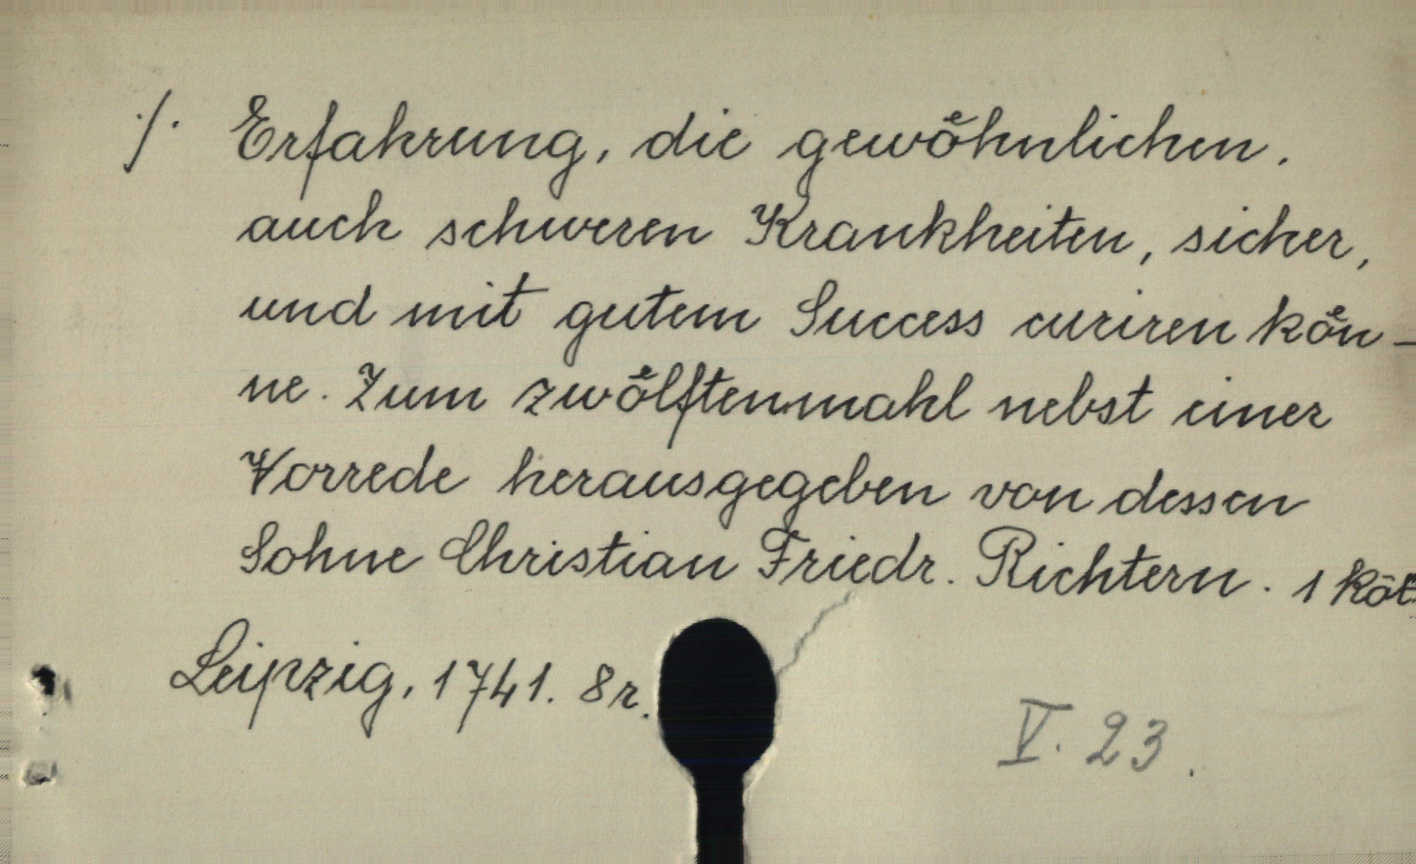 ./. Erfahrung, die gewoͤhnlichen.
auch schweren Krankheiten, sicher,
und mit gutem Success curiren koͤn-
ne. Zum zwoͤlftenmahl nebst einer
Vorrede herausgegeben von dessen
Sohne Christian Friedr. Richtern. 1 köt
Leipzig, 1741. 8r.
V. 23.